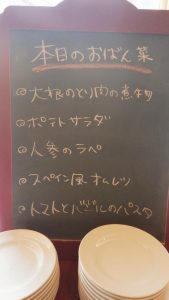 本日のおばん菜
◎大根のとり肉の煮物
◎ポテトサラダ
◎人参のラペ
◎スペイン風オムレツ
◎トマトとバジルのパスタ